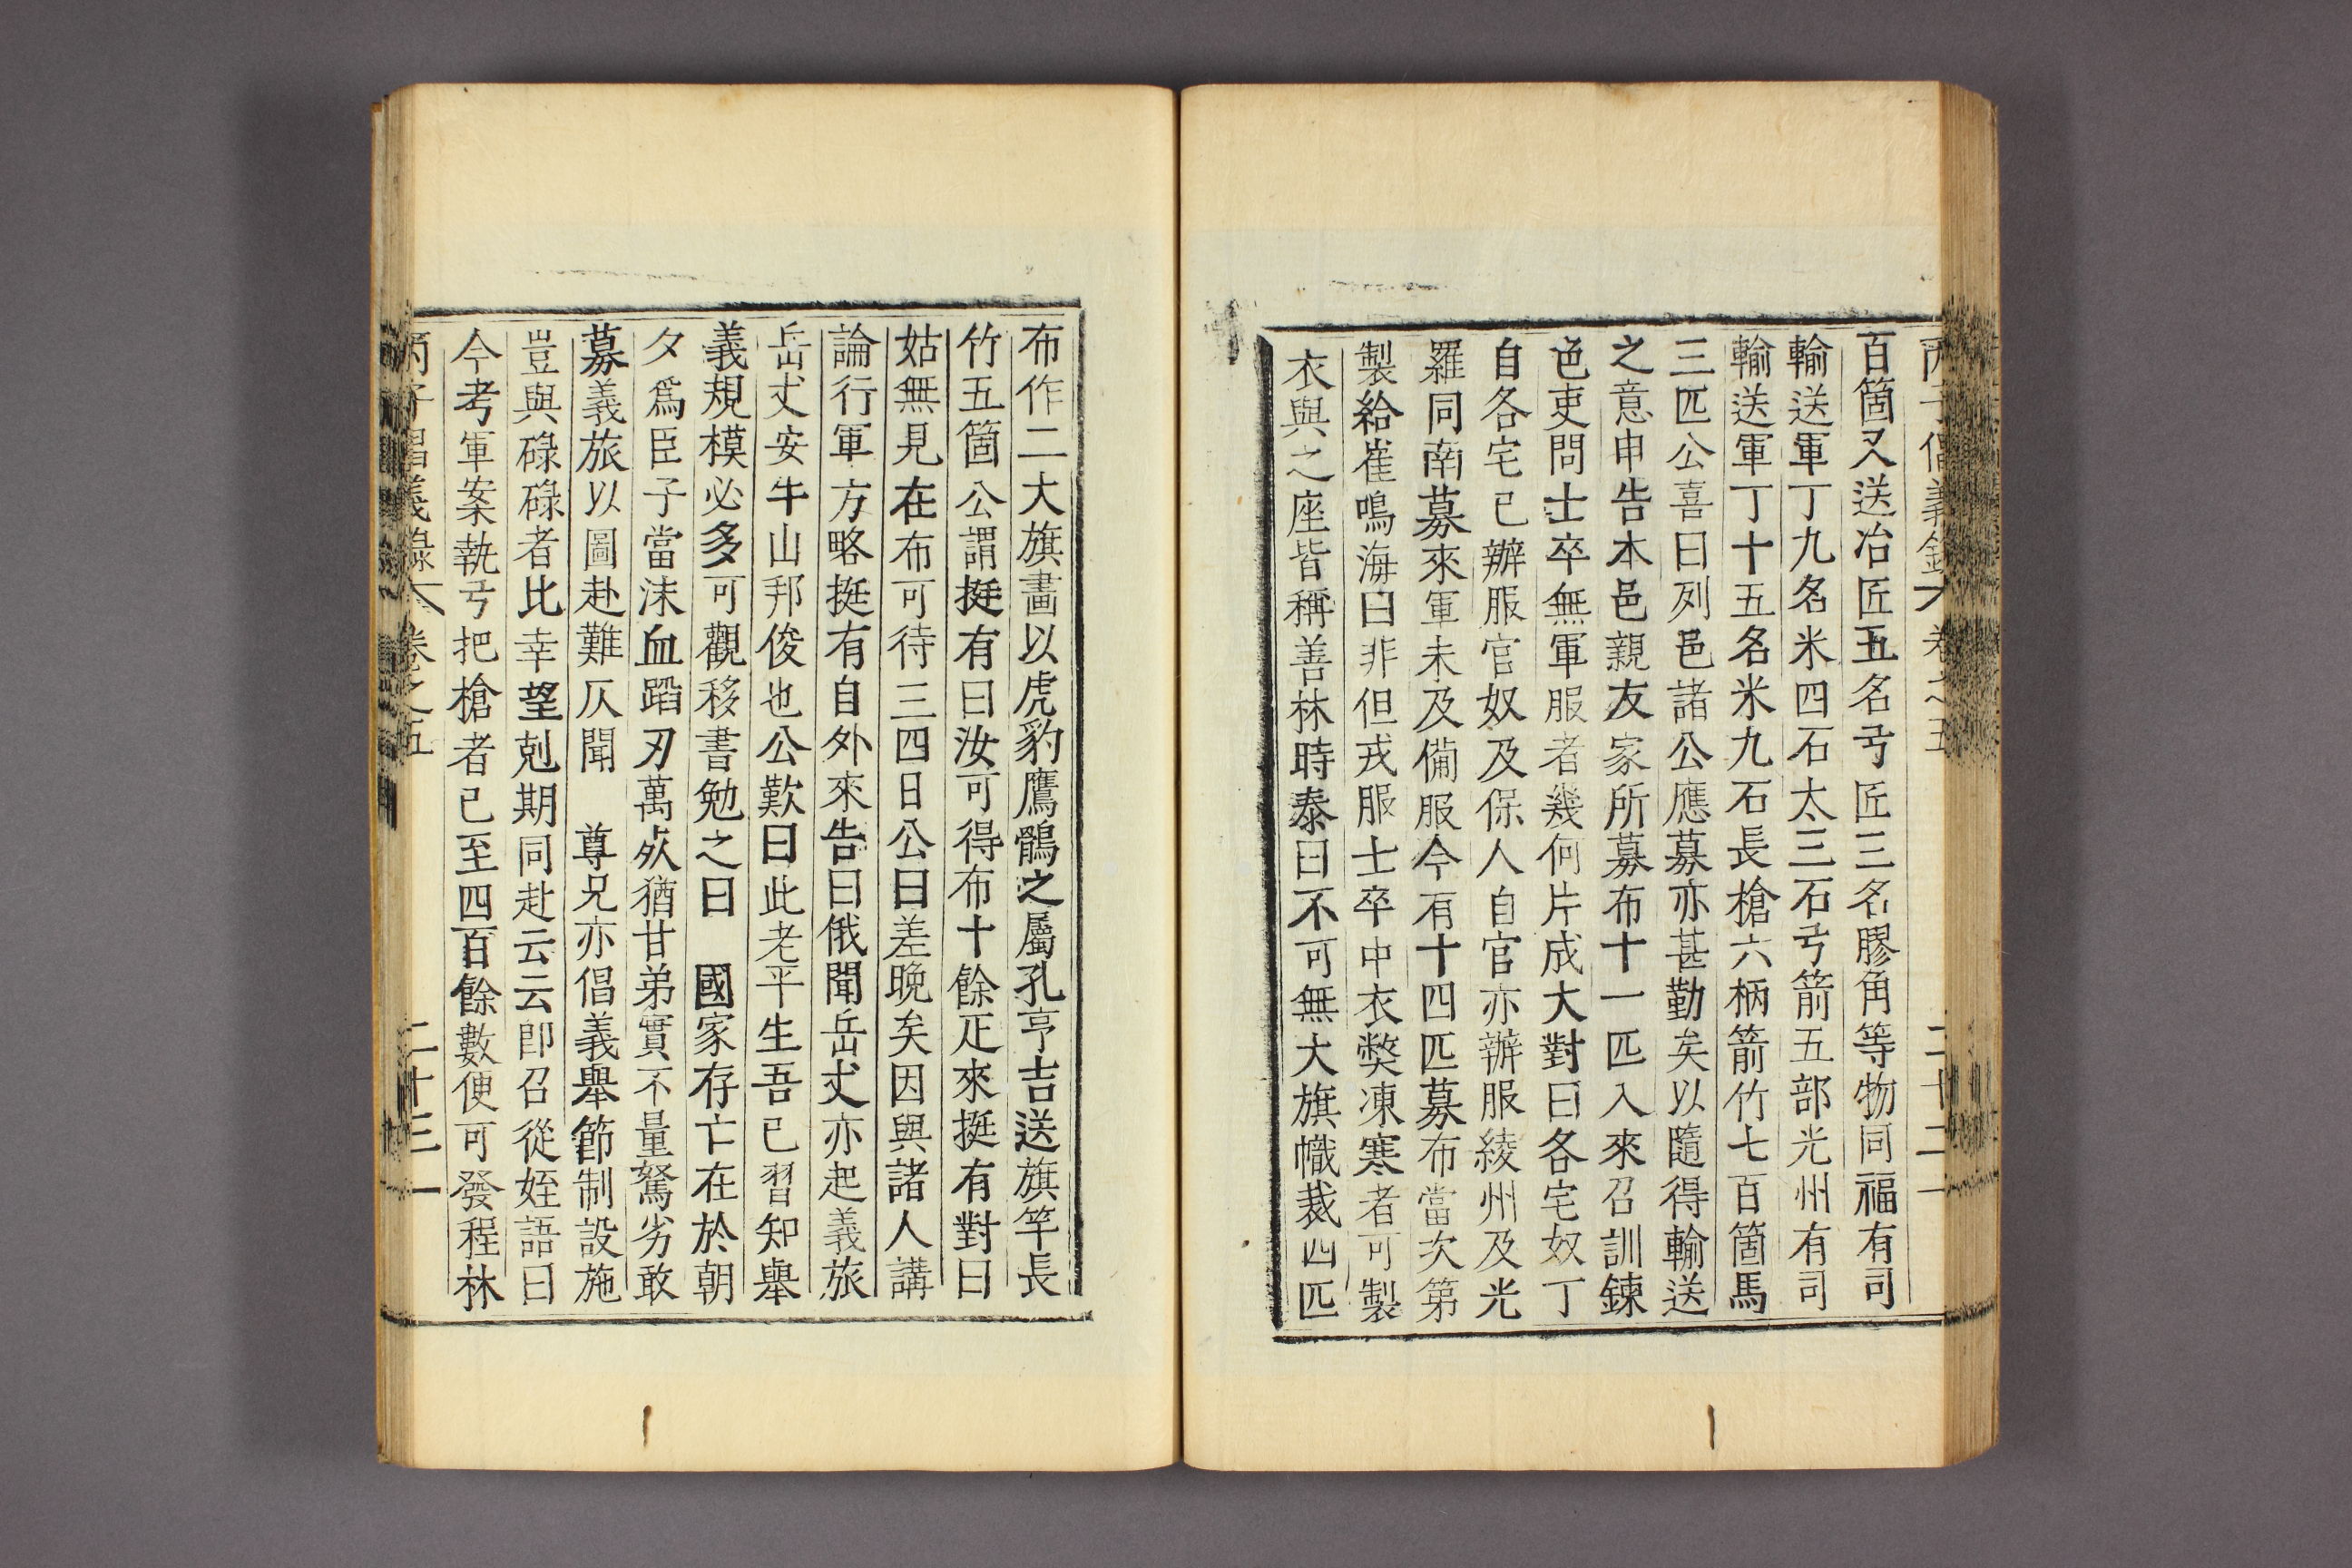 丙子倡義錄 卷之五 二十二
百箇又送冶匠五名弓匠三名膠角等物同福有司
輸送軍丁九名米四石太三石弓箭五部光州有司
輸送軍丁十五名米九石長槍六柄箭竹七百箇馬
三匹公喜曰列邑諸公應募亦甚勤矣以隨得輸送
之意申告本邑親友家所募布十一匹入來召訓鍊
色吏問士卒無軍服者幾何片成大對曰各宅奴丁
自各宅已辦服官奴及保人自官亦辦服綾州及光
羅同南募來軍未及備服今有十四匹募布當次第
製給崔鳴海曰非但戎服士卒中衣獘凍寒者可製
衣與之座皆稱善林時泰曰不可無大旗幟裁四匹
布作二大旗畫以虎豹鷹鶻之屬孔亨吉送旗竿長
竹五箇公謂挺有曰汝可得布十餘疋來挺有對曰
姑無見在布可待三四日公曰差晚矣因與諸人講
論行軍方略挺有自外來告曰俄聞岳丈亦起義旅
岳丈安牛山邦俊也公歎曰此老平生吾已習知舉
義規模必多可觀移書勉之曰 國家存亡在於朝
夕爲臣子當沬血蹈刃萬死猶甘弟實不量駑劣敢
募義旅以圖赴難仄聞 尊兄亦倡義舉節制設施
豈與碌碌者比幸望剋期同赴云云卽召從姪語曰
今考軍案執弓把槍者已至四百餘數便可發程林
丙子倡義錄 卷之五 二十三